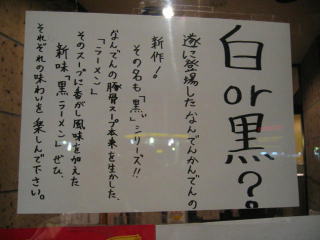 白or黒?
遂に登場したなんでんかんでんの
新作!
その名も「黒」シリーズ!!
なんでんの豚骨スープ本来を生かした、
「ラーメン」
そのスープに香がし風味を加えた
新味「黒ラーメン」ぜひ、
それぞれの味わいを楽しんで下さい。